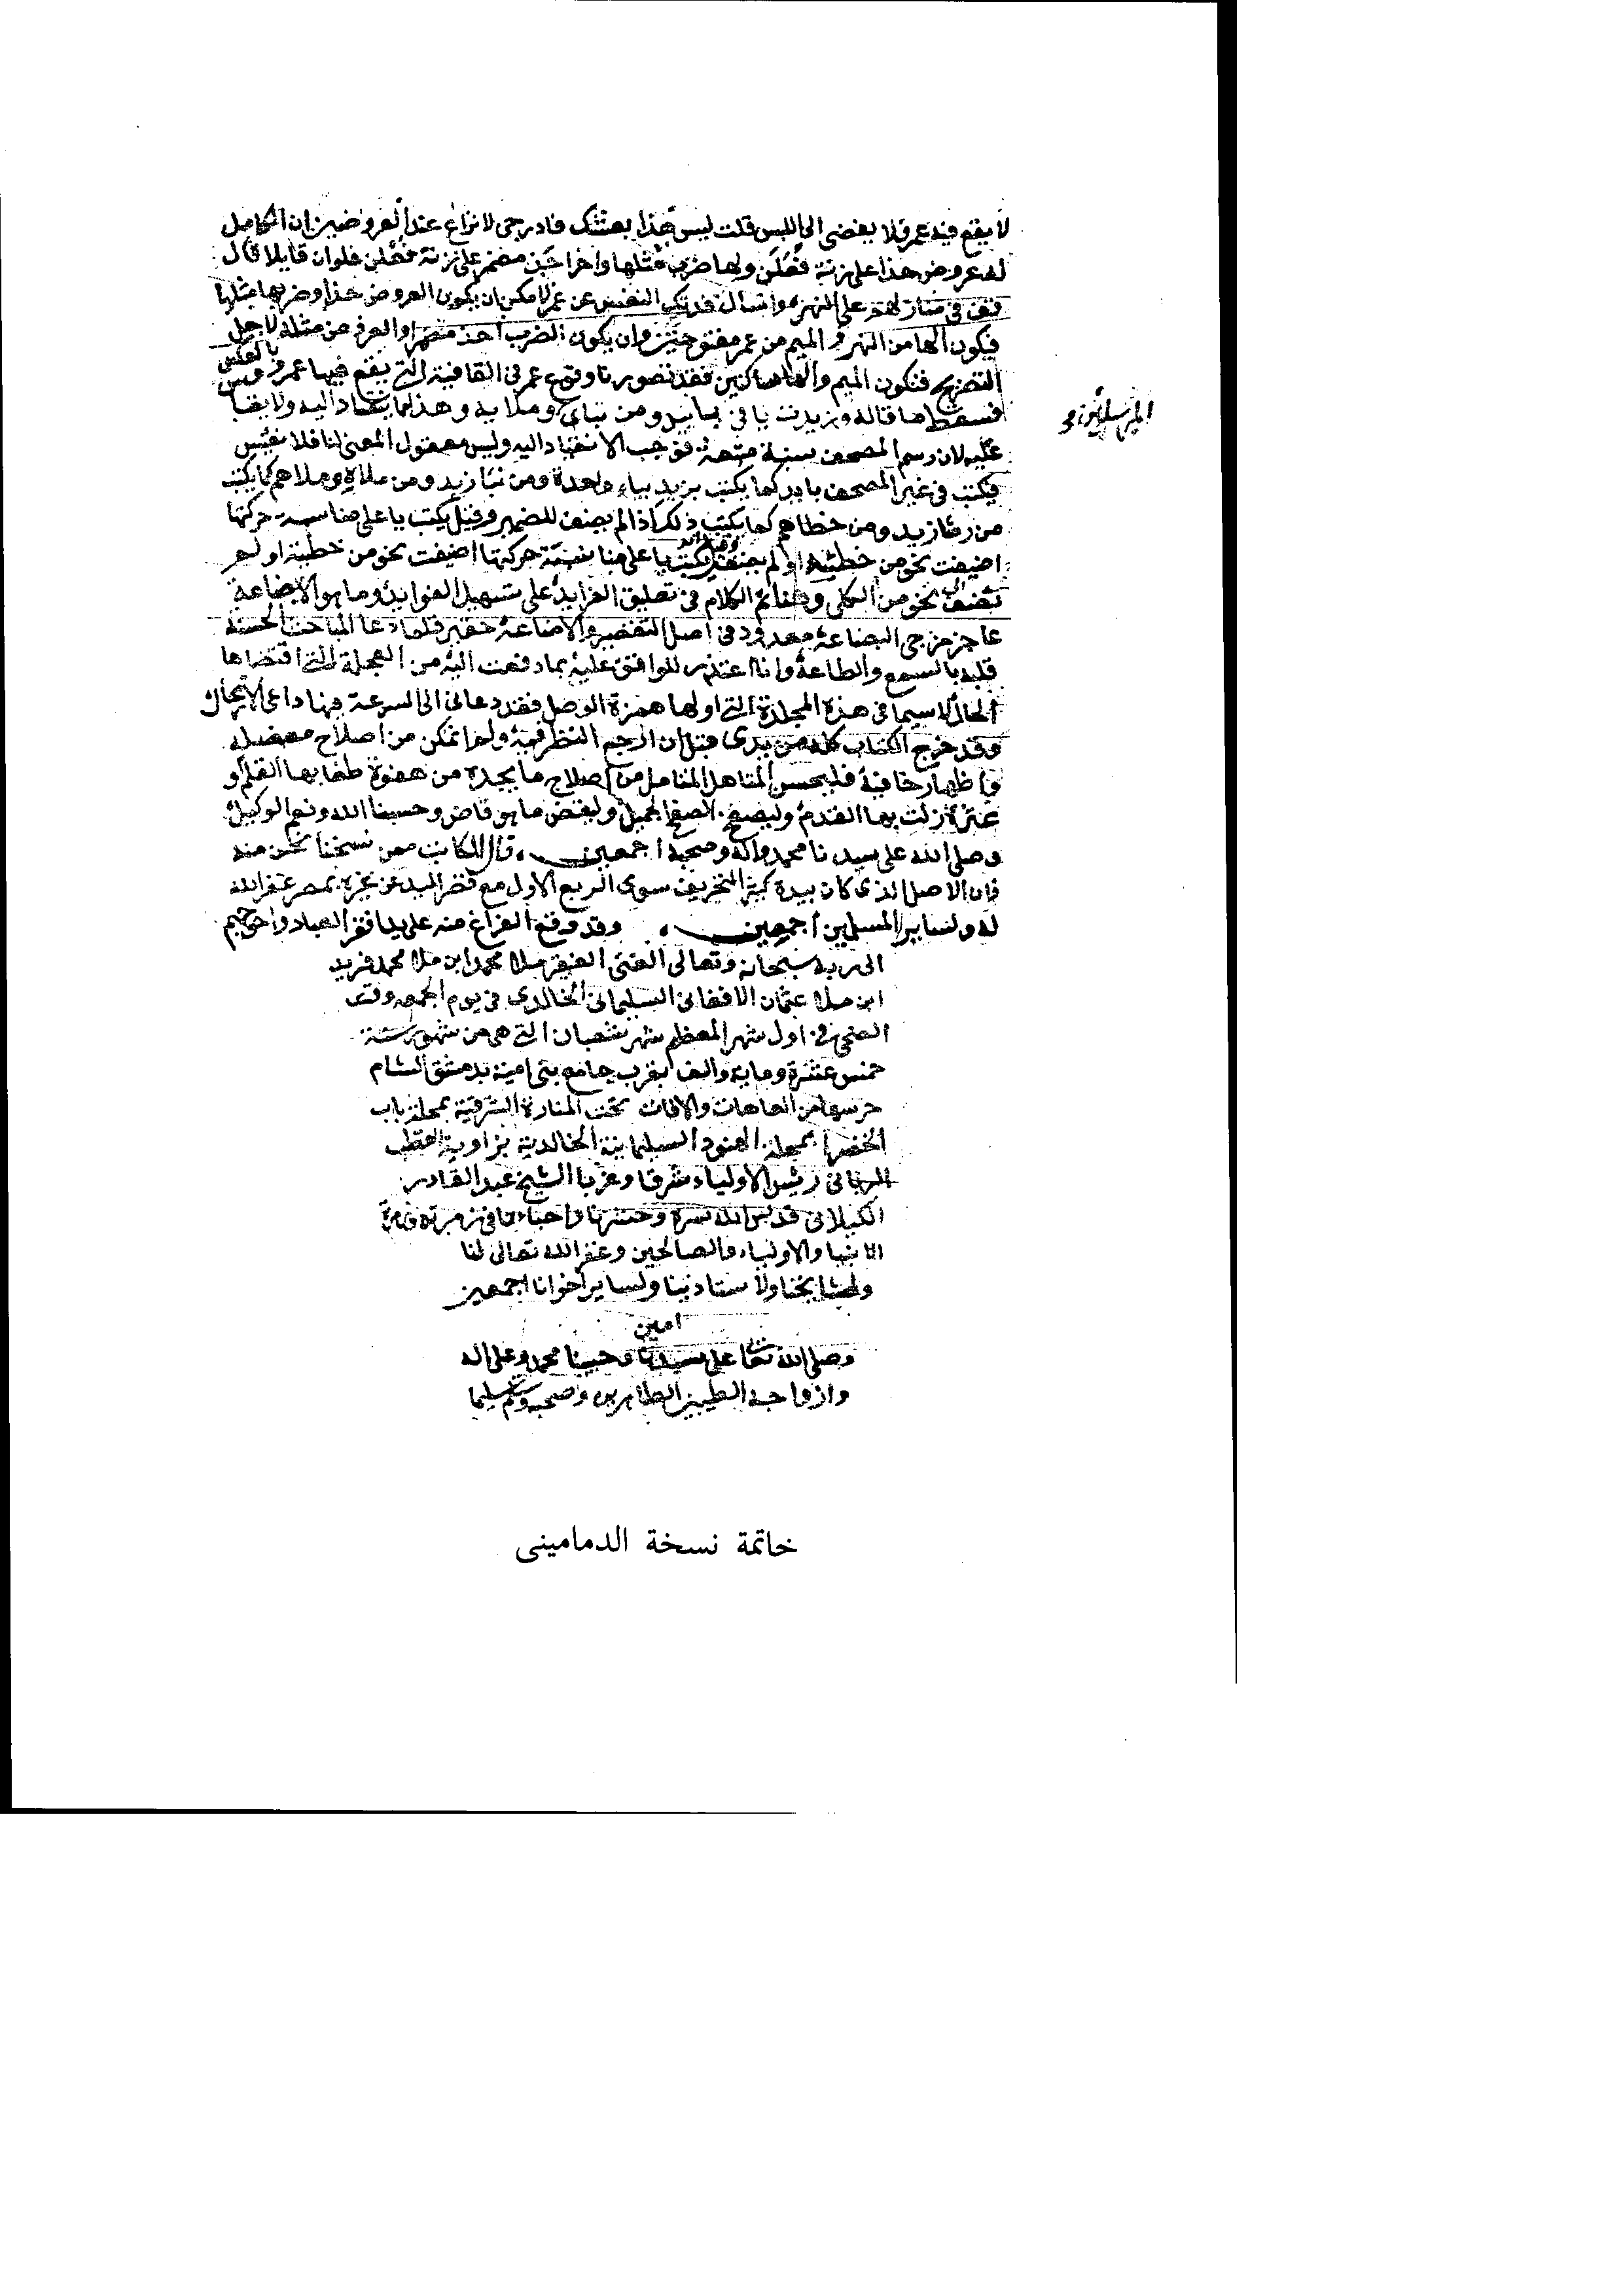 لا يقع فيه عمرو فلا يفضى الى اللبس قلت ليس هذا بمتنك فادر جى لا نزاع عند العروضيين ان الكامل
له عروض هذا على زنة فعلن ولها ضرب مثلها واخر مضمر على زنة فعلن فلوان قايلا قال
قف فى منازلهم على النهر واسال فديتك النفس عن عمر لا مكن ان يكون العروض حذا وضربها مثلها
فيكون الها من النهر و الميم من عمر مفتوحتين وان يكون الضرب احذ مضمرا والعروض مثله لاجل
التصريع فتكون الميم والها ساكنين فقد تصور نا وقوع عمر فى القافية التى يقع فيها عمرو
فسقط ما قاله وزيدت يا فى باييد ومن نباى وملايه وهذا مما ينقاد اليه ولا يقا
عليه لان رسم المصحف سنة متبعة فوجب الانقياد اليه وليس معقول المعنى لنا فلا نقيس
فيكتب فى غير المصحف بايد كما يكتب بزيد بياء واحدة ومن نبا زيد ومن ملاه وملاهم كما يكتب
من رشا زيد ومن خطاهم كما يكتب ذلك اذا لم يضف للضمير وقيل يكتب يا على مناسبة حركتها
اضيفت نحو من خطئه او لم يكتب يا على مناسبة حركتها اضيفت نحو من خطيئه او لم
تضف نحو من الكلى وهنا تم الكلام فى تعليق الفرايد على تسهيل الفوايد وما هو الا بضاعة
عاجز مزجى البضاعة معدود فى اصل التقصير والاضاعة حقير فلما دعا المباحث الحسنة
قلبه بالسمع والطاعة وانا اعتذر للواقف عليه بما دفعت اليه من العجلة التى اقتضاها
الحال لا سيما فى هذه المجلدة التى اولها همزة الوصل فقد دعانى الى السرعة فيها داعى الارتحال
وقد خرج الكتاب كله من يدى قبل ان ارجع النظر فيه ولم اتمكن من اصلاح معضله
واظهار خافية فليحسن المتاهل المتامل من اصلاح ما يجده من هفوة طغا بها القلم او
عثرة زلت بها القدم وليصفح الصفح الجميل وليقض ما هو قاض وحسبنا الله ونعم الوكيل
وصلى الله على سيدنا محمد واله وصحبه اجمعين قال الكاتب ممن نسخنا نحن منه
فان الاصل الذى كان بيده كثير التحريف سوى الربع الاول مع قصر اليد عن غيره بمصر غفر الله
له ولساير المسلمين اجمعين وقد وقع الفراغ منه على يد افقر العباد واحوجهم
الى ربه سبحانه وتعالى الغنى الفقير ملا محمد ابن ملا محمد فريد
ابن ملا عثمان الافغانى السليمانى الخالدى فى يوم الجمعه وقت
الضحى فى اول شهر المعظم شهر شعبان التى هى من شهور سنة
خمس عشرة وماية والف بقرب جامع بنى امية بدمشق الشام
حرسها من العاهات والافات تحت المنارة الشرقية بمحلة باب
الخضرا بمحلة الهنود السليمانية الخالدية بزاوية القطب
الربانى رئيس الاولياء شرقا وغربا الشيخ عبد القادر
الكيلانى قدس الله سره وحشرنا واحباءنا فى زمرته وزمرة
الانبيا والاولياء والصالحين وغفر الله تعالى لنا
ولمشايخنا ولاستادينا ولساير اخواننا اجمعين
امين
وصلى الله تعا على سيدنا وحبيبنا محمد وعلى اله
وازواجه الطيبين الطاهرين وصحبه وسلم تسليما
خاتمة نسخة الدمامينى